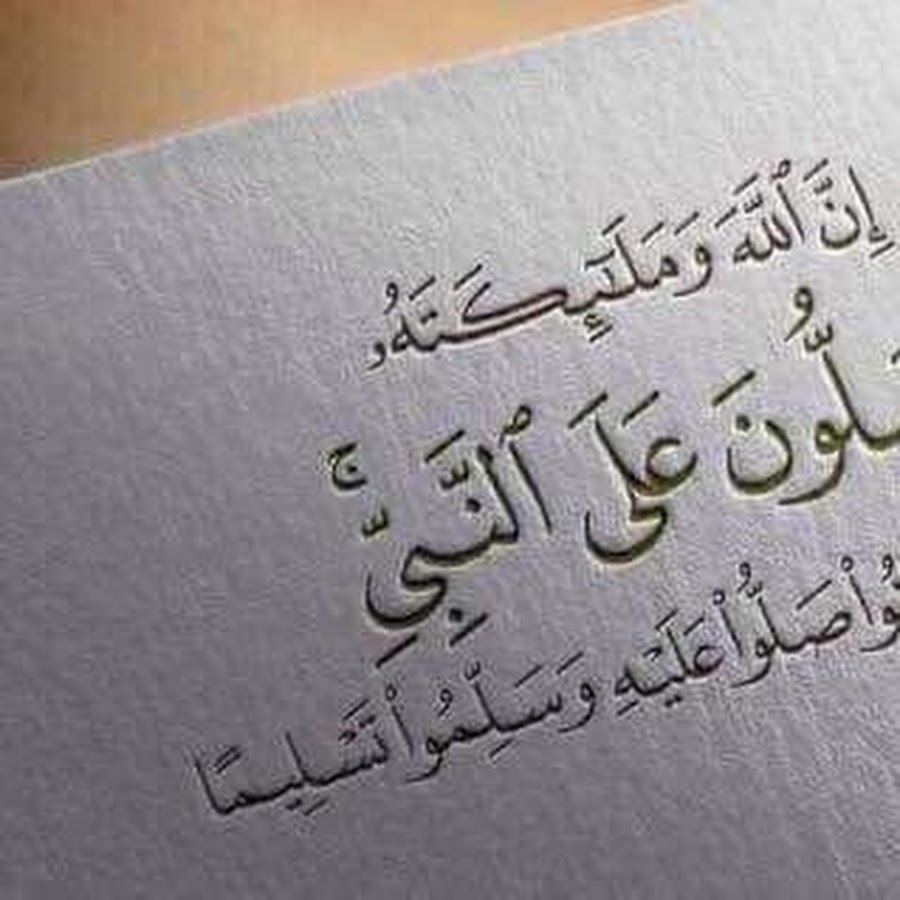 إِنَّ ٱللَّهَ وَمَلَـٰٓئِكَتَهُۥ
عَلَى ٱلنَّبِيِّ ۚ
صَلُّوا۟ عَلَيْهِ وَسَلِّمُوا۟ تَسْلِيمًا